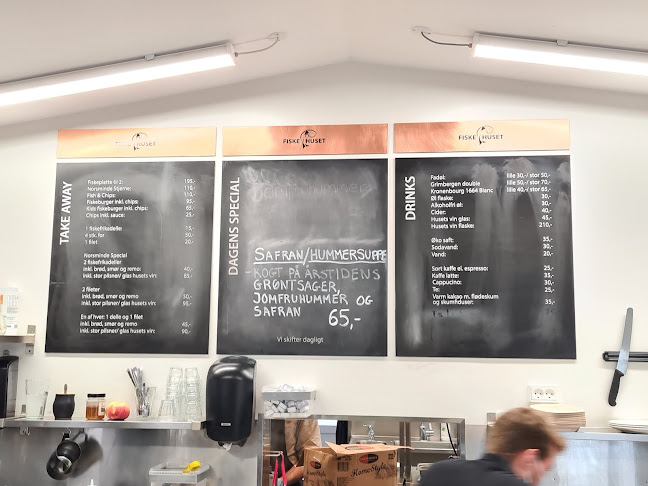 FISKE HUSET
TAKE AWAY
Fiskeplatte til 2: 195,-
Norsminde Stjerne: 110,-
Fish & Chips: 110,-
Fiskeburger inkl. chips: 95,-
Kids fiskeburger inkl. chips: 65,-
Chips inkl. sauce: 25,-
1 fiskefrikadelle: 15,-
4 stk. for 50,-
1 filet 20,-
Norsminde Special
2 fiskefrikadeller
inkl. brød, smør og remo 40,-
inkl. stor pilsner/ glas husets vin: 85,-
2 fileter
inkl. brød, smør og remo 50,-
inkl. stor pilsner/ glas husets vin: 95,-
En af hver: 1 delle og 1 filet
inkl. brød, smør og remo 45,-
inkl. stor pilsner/ glas husets vin 90,-
FISKE HUSET
DAGENS SPECIAL
SAFRAN/HUMMERSUPPE
- KOGT PÅ ÅRSTIDENS
GRØNTSAGER,
JOMFRUHUMMER OG
SAFRAN 65,-
Vi skifter dagligt
FISKE HUSET
DRINKS
Fadøl: lille 30,-/ stor 50,-
Grimbergen double lille 50,-/ stor 70,-
Kronenbourg 1664 Blanc lille 40,-/ stor 65,-
Øl flaske: 30,-
Alkoholfri øl: 30,-
Cider: 40,-
Husets vin glas: 45,-
Husets vin flaske: 210,-
Øko saft: 35,-
Sodavand: 30,-
Vand: 20,-
Sort kaffe el. espresso: 25,-
Kaffe latte: 35,-
Cappucino: 30,-
Te: 25,-
Varm kakao m. flødeskum
og skumfiduser: 35,-
HomeStyle